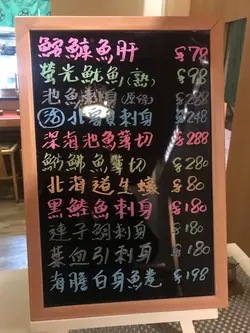 鮟鱇魚肝 $78
螢光魷魚(熟) $98
池魚刺身(原條) $288
刺身 $248
深海池魚薄切 $288
魚薄切 $280
北海道生蠔 $80
黑鮭魚刺身 $180
連子鯛刺身 $180
葉血引刺身 $180
海膽白身魚卷 $198